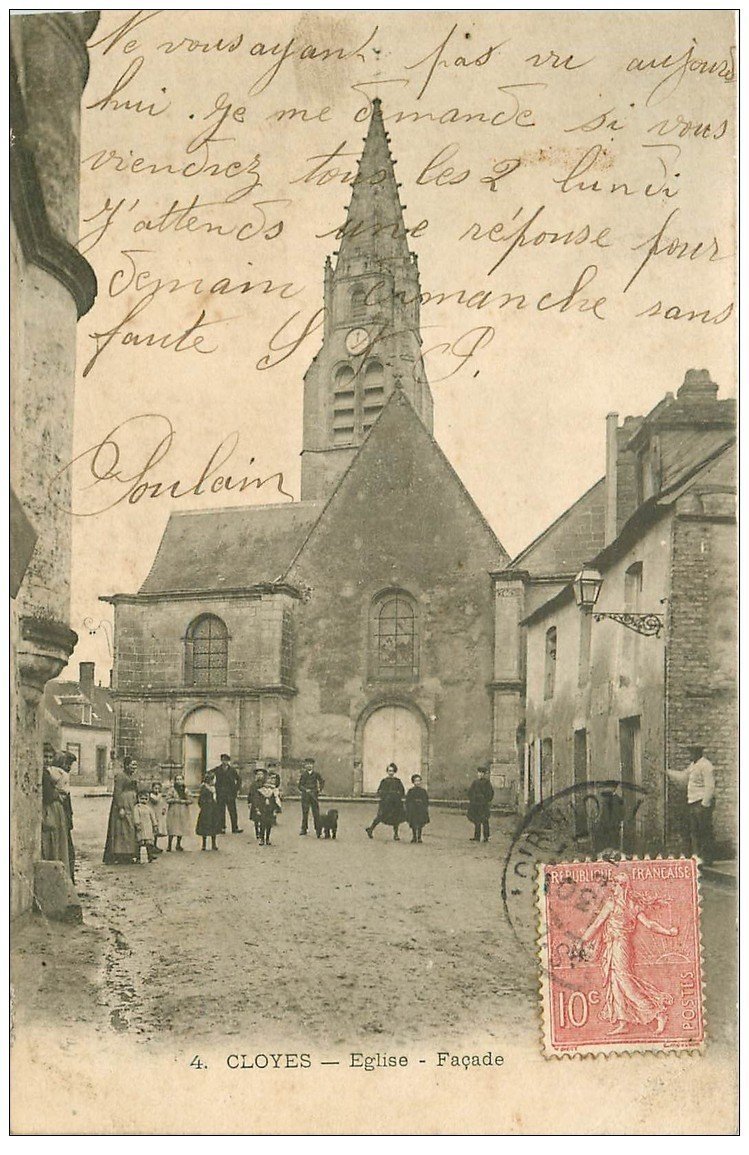 Ne vous ayant pas vu aujourd
hui. Je me demande si vous
viendrez tous les 2 lundi
J'attends une réponse pour
demain dimanche sans
faute S V P.
Poulain
RÉPUBLIQUE FRANÇAISE
10c
POSTES
4. CLOYES — Eglise - Façade